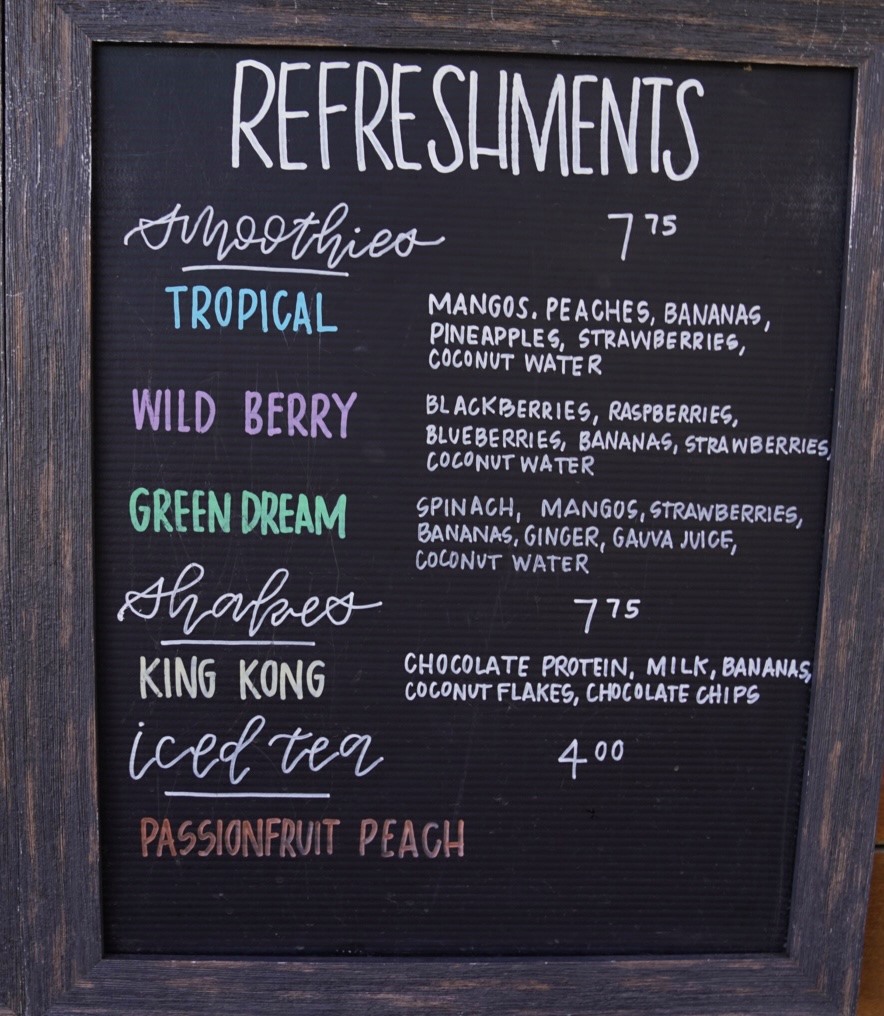 REFRESHMENTS
smoothies 7 75
TROPICAL MANGOS. PEACHES, BANANAS,
PINEAPPLES, STRAWBERRIES,
COCONUT WATER
WILD BERRY BLACKBERRIES, RASPBERRIES,
BLUEBERRIES, BANANAS, STRAWBERRIES,
COCONUT WATER
GREEN DREAM SPINACH, MANGOS, STRAWBERRIES,
BANANAS, GINGER, GAUVA JUICE,
COCONUT WATER
shakes 7 75
KING KONG CHOCOLATE PROTEIN, MILK, BANANAS,
COCONUT FLAKES, CHOCOLATE CHIPS
iced tea 4 00
PASSIONFRUIT PEACH